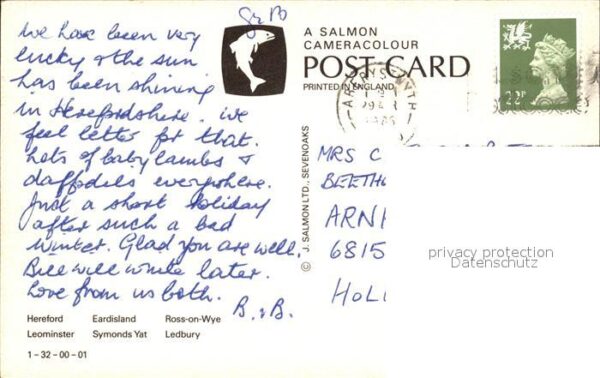 Gr Br
We have been very
lucky & the sun
has been shining
in Herefordshire. We
feel better for that.
Lots of baby lambs &
daffodils everywhere.
Just a short holiday
after such a bad
winter. Glad you are well.
Bill will write later.
Love from us both.
B. & B.
Hereford Eardisland Ross-on-Wye
Leominster Symonds Yat Ledbury
1-32-00-01
© J. SALMON LTD., SEVENOAKS
A SALMON
CAMERACOLOUR
POST CARD
PRINTED IN ENGLAND
22P
MRS C
BEETH
ARN
6815
HOL
privacy protection
Datenschutz